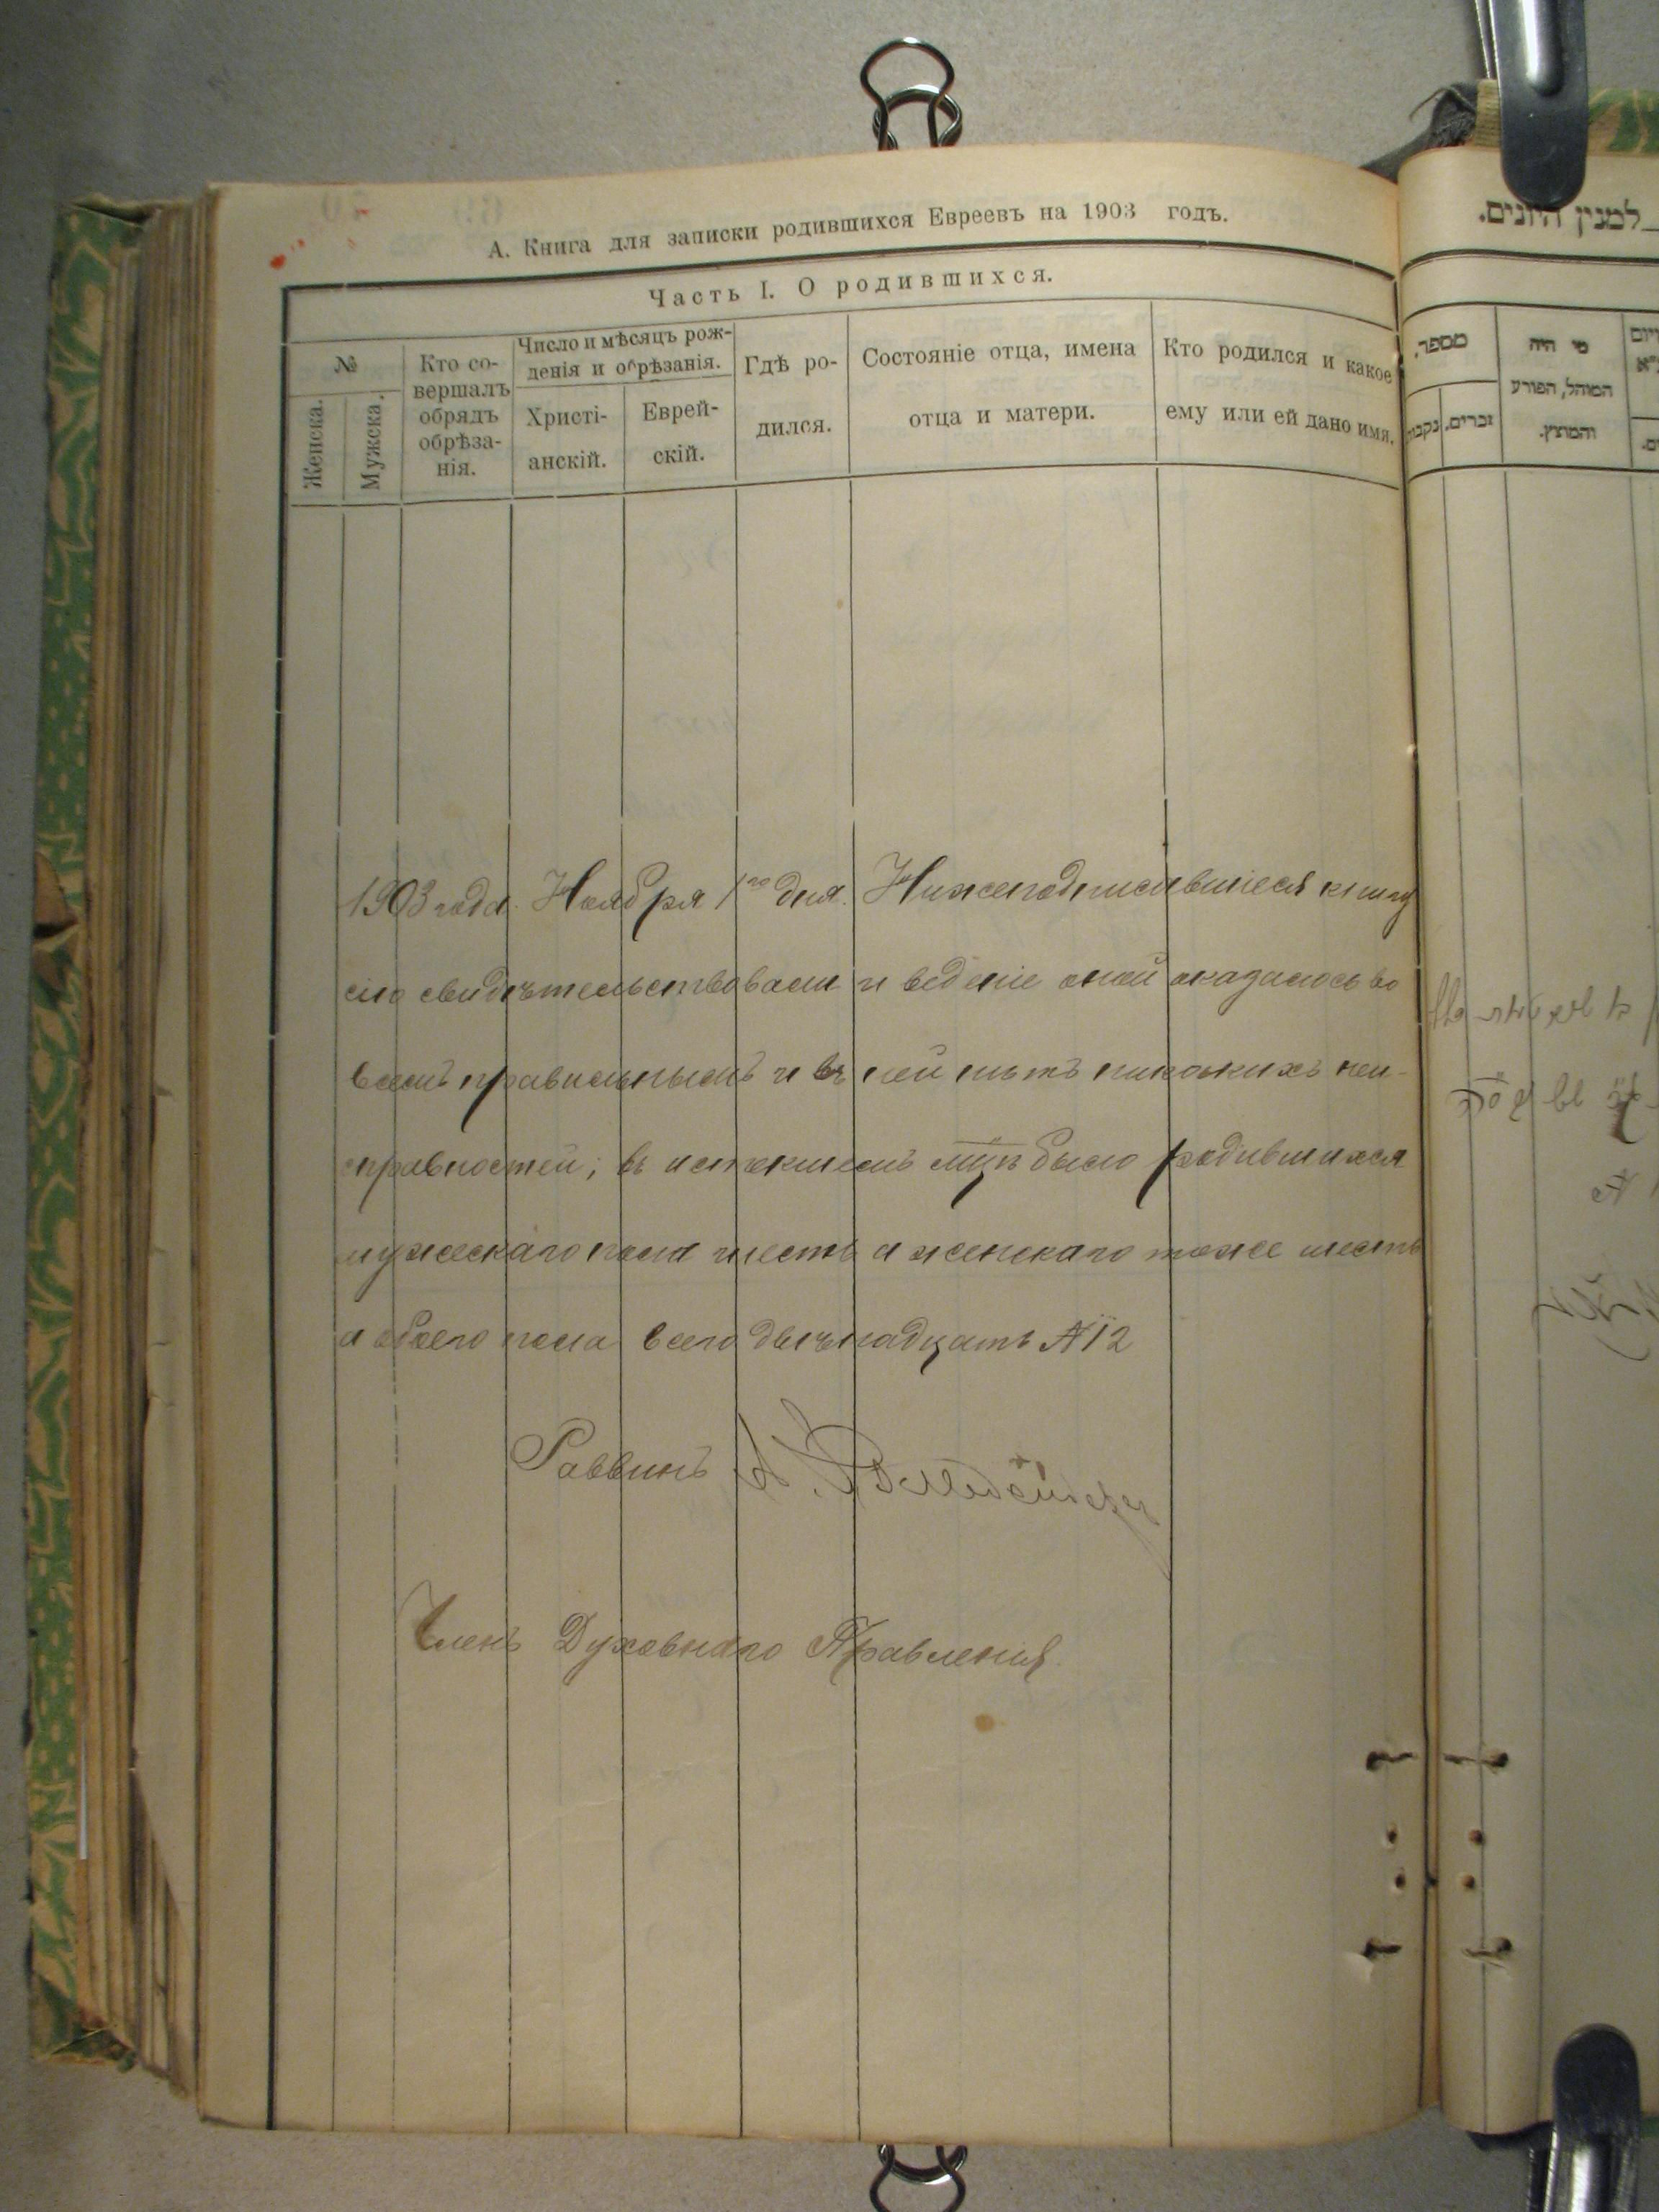 А. Книга для записки родившихся Евреевъ на 1903 годъ.
Часть I. О родившихся.
№
Женска.
Мужска.
Кто со-
вершалъ
обрядъ
обрѣза-
нія.
Число и мѣсяцъ рож-
денія и обрѣзанія.
Христі-
анскій.
Еврей-
скій.
Гдѣ ро-
дился.
Состояніе отца, имена
отца и матери.
Кто родился и какое
ему или ей дано имя.
1903 года. Ноября 1го дня. Нижеподписавшіеся книгу
сію свидѣтельствовали и веденіе оной оказалось во
всемъ правильнымъ и въ ней нѣтъ никакихъ неи-
справностей; въ истекшемъ мцѣ было родившихся
мужескаго пола шесть а женскаго тоже шесть
а обоего пола всего двѣнадцать № 12
Раввинъ
Членъ Духовнаго Правленія
למנין היונים.
מספר.
נקבות
זכרים.
מי היה
המוהל, הפורע
והמוצץ.